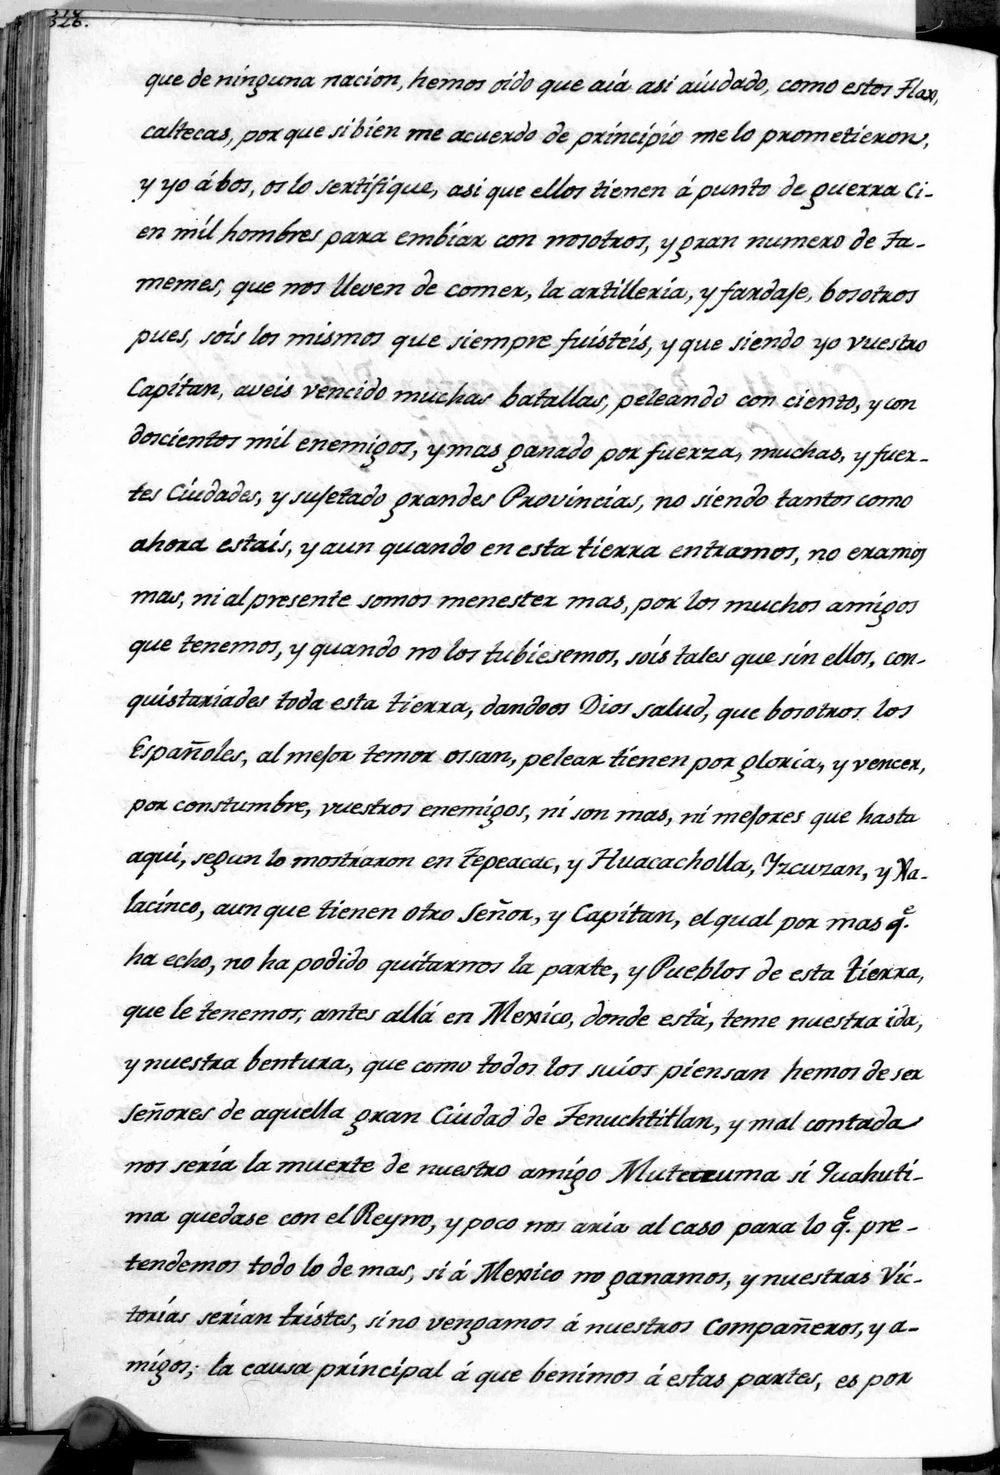 328.
que de ninguna nacion, hemos oido que aiá asi aiudado, como estos Tlax,
caltecas, por que si bien me acuerdo de principio me lo prometieron,
y yo á bos, os lo sertifique, asi que ellos tienen á punto de guerra ci-
en mil hombres para embiar con nosotros, y gran numero de Ta-
memes, que nos lleven de comer, la artilleria, y fardaje, bosotros
pues, sois los mismos que siempre fuisteis, y que siendo yo vuestro
Capitan, aveis vencido muchas batallas, peleando con ciento, y con
doscientos mil enemigos, y mas ganado por fuerza, muchas, y fuer-
tes Ciudades, y sujetado grandes Provincias, no siendo tantos como
ahora estais, y aun quando en esta tierra entramos, no eramos
mas, ni al presente somos menester mas, por los muchos amigos
que tenemos, y quando no los tubiesemos, sois tales que sin ellos, con-
quistariades toda esta tierra, dandoos Dios salud, que bosotros los
Españoles, al mejor temor ossan, pelear tienen por gloria, y vencer,
por constumbre, vuestros enemigos, ni son mas, ni mejores que hasta
aqui, segun lo mostraron en Tepeacac, y Huacacholla, Yzcuzan, y Xa-
lacinco, aun que tienen otro Señor, y Capitan, el qual por mas q.e
ha echo, no ha podido quitarnos la parte, y Pueblos de esta tierra,
que le tenemos, antes allá en Mexico, donde está, teme nuestra ida,
y nuestra bentura, que como todos los suios piensan hemos de ser
Señores de aquella gran Ciudad de Tenuchtitlan, y mal contada
nos seria la muerte de nuestro amigo Muteczuma si Quahuti-
ma quedase con el Reyno, y poco nos aria al caso para lo q.e pre-
tendemos todo lo de mas, si á Mexico no ganamos, y nuestras Vic-
torias serian tristes, si no vengamos á nuestros Compañeros, y a-
migos; la causa principal á que benimos á estas partes, es por